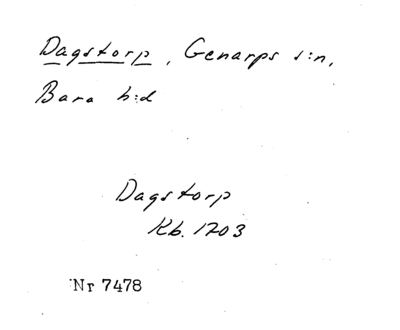 Dagstorp, Genarps s:n,
Bara h:d
Dagstorp
Kb. 1703
Nr 7478